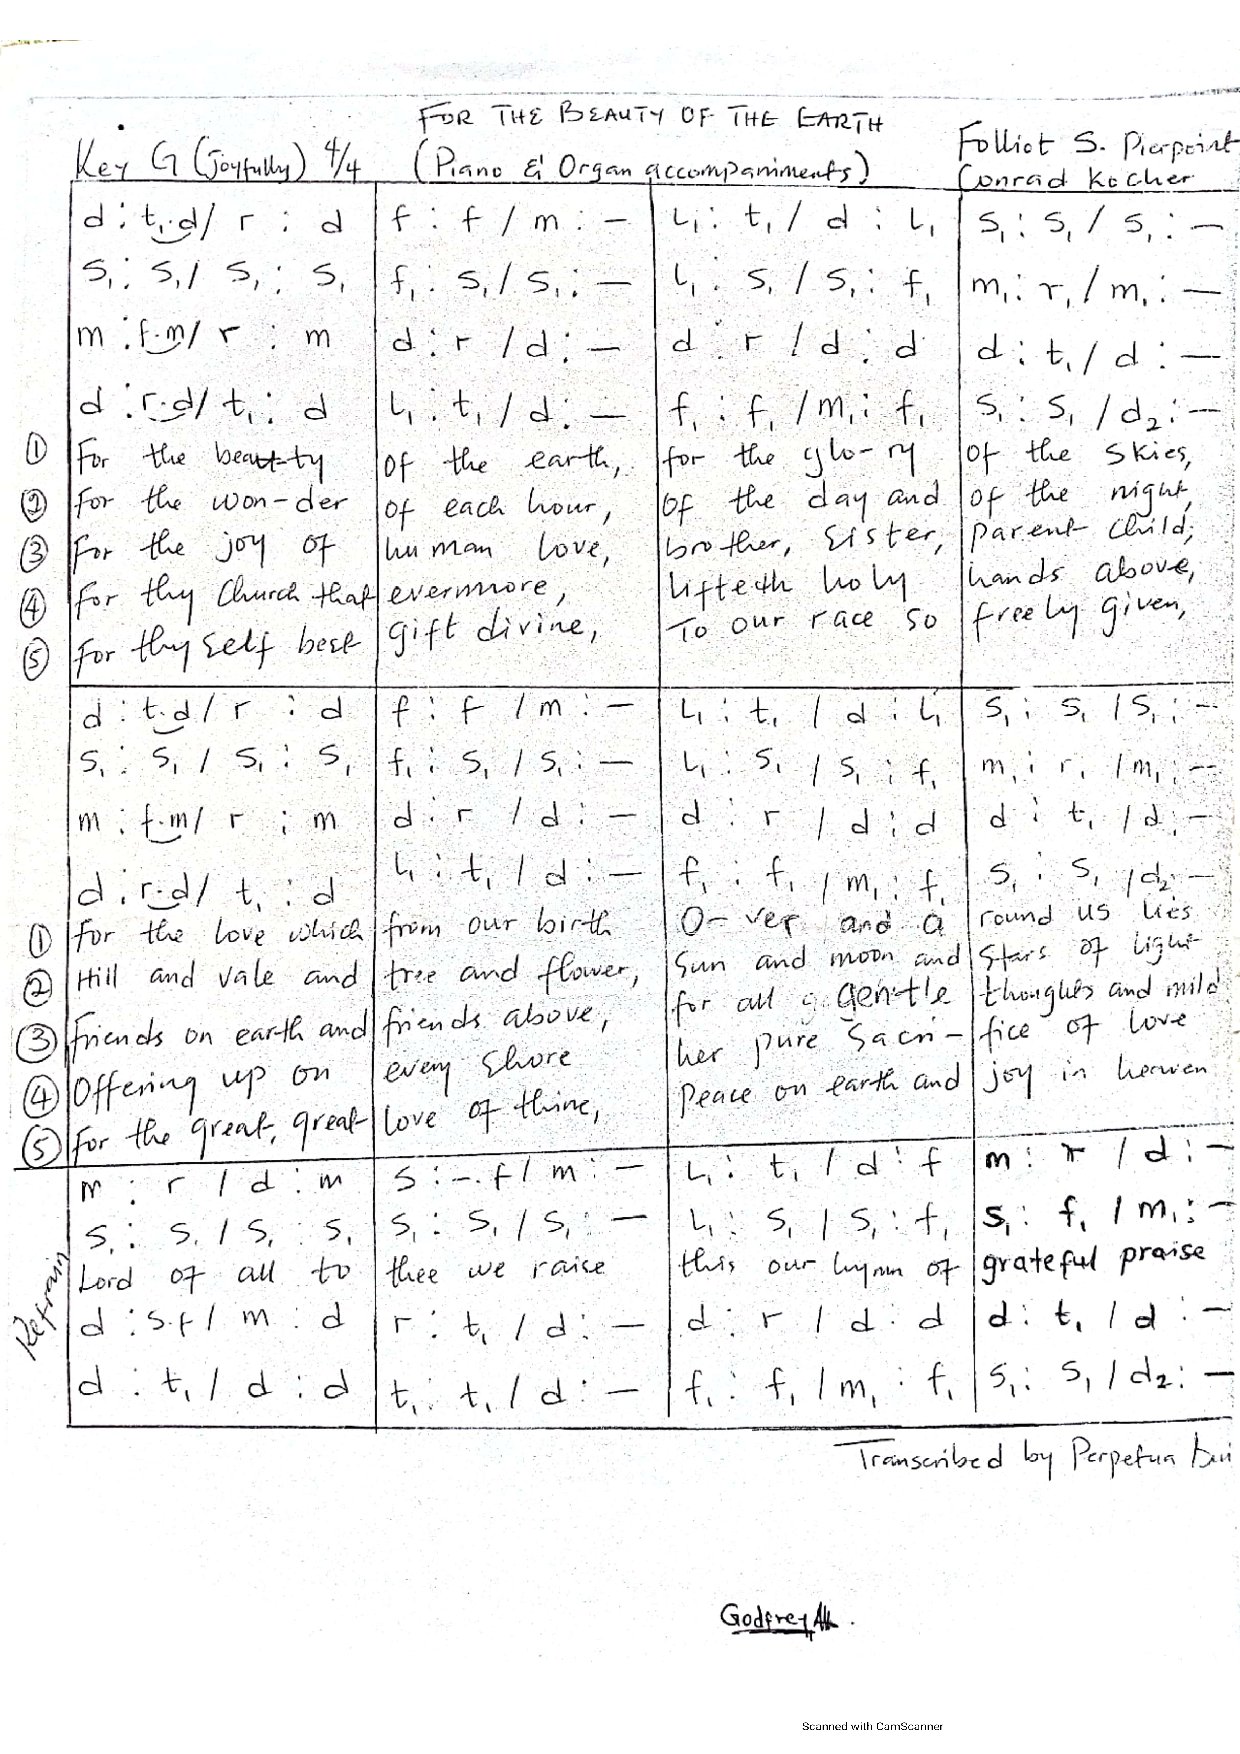 FOR THE BEAUTY OF THE EARTH
Key G (Joyfully) 4/4 (Piano & Organ accompaniments) Folliot S. Pierpoint
Conrad Kocher
d : t₁.d / r : d | f : f / m : — | L₁ : t₁ / d : L₁ | S₁ : S₁ / S₁ : —
S₁ : S₁ / S₁ : S₁ | f₁ : S₁ / S₁ : — | L₁ : S₁ / S₁ : f₁ | m₁ : r₁ / m₁ : —
m : f.m / r : m | d : r / d : — | d : r / d : d | d : t₁ / d : —
d : r.d / t₁ : d | L₁ : t₁ / d : — | f₁ : f₁ / m₁ : f₁ | S₁ : S₁ / d₂ : —
① For the beauty | of the earth, | for the glo-ry | of the skies,
② For the won-der | of each hour, | of the day and | of the night,
③ For the joy of | human love, | brother, Sister, | parent child;
④ for thy Church that | evermore, | lifteth holy | hands above,
⑤ for thy self best | gift divine, | To our race so | freely given,
d : t.d / r : d | f : f / m : — | L₁ : t₁ / d : L₁ | S₁ : S₁ / S₁ : —
S₁ : S₁ / S₁ : S₁ | f₁ : S₁ / S₁ : — | L₁ : S₁ / S₁ : f₁ | m₁ : r₁ / m₁ : —
m : f.m / r : m | d : r / d : — | d : r / d : d | d : t₁ / d : —
d : r.d / t₁ : d | L₁ : t₁ / d : — | f₁ : f₁ / m₁ : f₁ | S₁ : S₁ / d₂ : —
① for the love which | from our birth | O-ver and a | round us lies
② Hill and vale and | tree and flower, | Sun and moon and | Stars of light
③ friends on earth and | friends above, | for all gentle | thoughts and mild
④ Offering up on | every Shore | her pure Sacri- | fice of love
⑤ for the great, great | love of thine, | Peace on earth and | joy in heaven
m : r / d : m | S : —.f / m : — | L₁ : t₁ / d : f | m : r / d : —
S₁ : S₁ / S₁ : S₁ | S₁ : S₁ / S₁ : — | L₁ : S₁ / S₁ : f₁ | S₁ : f₁ / m₁ : —
Refrain Lord of all to | thee we raise | this our hymn of | grateful praise
d : S.f / m : d | r : t₁ / d : — | d : r / d : d | d : t₁ / d : —
d : t₁ / d : d | t₁ : t₁ / d : — | f₁ : f₁ / m₁ : f₁ | S₁ : S₁ / d₂ : —
Transcribed by Perpetua
Godfrey
Scanned with CamScanner